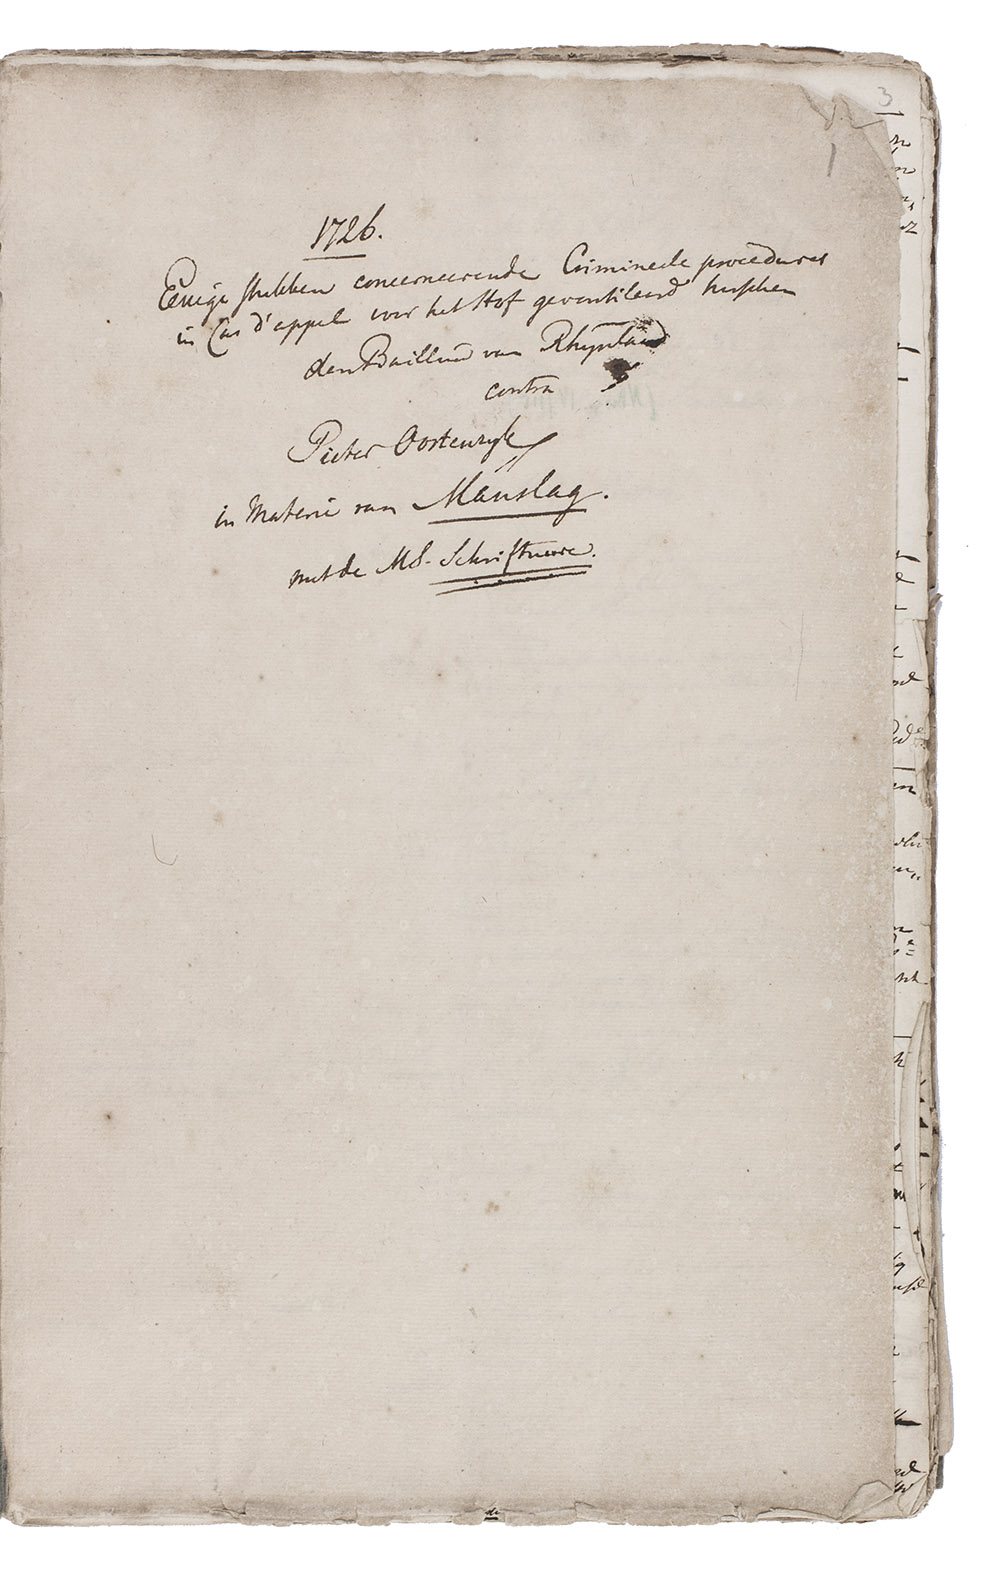 3
1
1726.
Eenige stukken concerneerende Crimineele procedures
in Cas d'appel voor het Hof geventileerd tusschen
den Bailluw van Rhynland
contra
Pieter Oostenryk
in Materie van Manslag.
met de MS. Schriftuure.